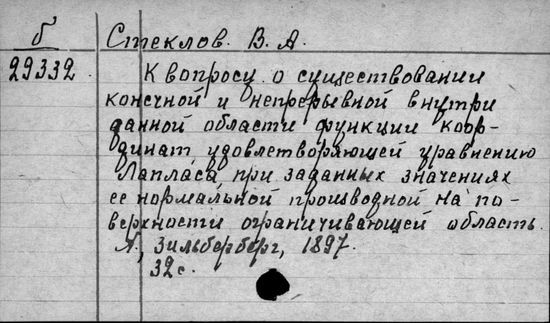 б
Стеклов. В. А.
29332.
К вопросу о существовании
конечной и непрерывной внутри
данной области функции коор-
динат, удовлетворяющей уравнению
Лапласа, при заданных значениях
ее нормальной производной на по-
верхности ограничивающей область.
Зильберберг, 1897.
32 с.